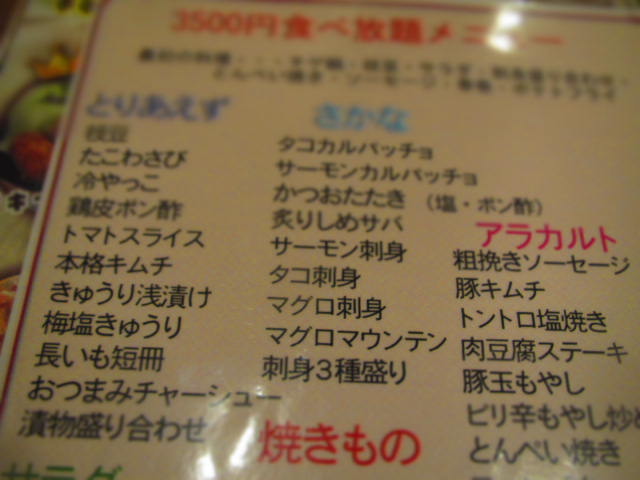 3500円食べ放題メニュー
とりあえず
枝豆
たこわさび
冷やっこ
鶏皮ポン酢
トマトスライス
本格キムチ
きゅうり浅漬け
梅塩きゅうり
長いも短冊
おつまみチャーシュー
漬物盛り合わせ
サラダ
さかな
タコカルパッチョ
サーモンカルパッチョ
かつおたたき（塩・ポン酢）
炙りしめサバ
サーモン刺身
タコ刺身
マグロ刺身
マグロマウンテン
刺身3種盛り
焼きもの
アラカルト
粗挽きソーセージ
豚キムチ
トントロ塩焼き
肉豆腐ステーキ
豚玉もやし
ピリ辛もやし炒め
とんぺい焼き